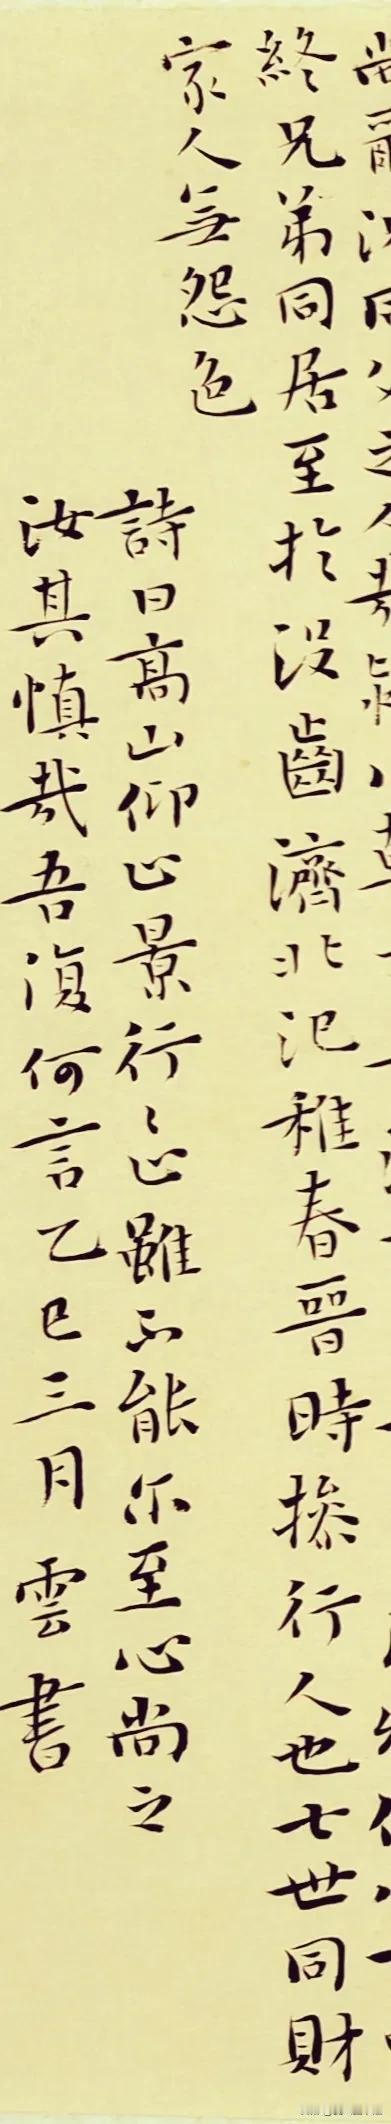 尚爾況同父之人哉潁川
終兄弟同居至於沒齒濟北氾稚春晉時操行人也七世同財
家人無怨色
詩曰高山仰止景行〻止雖不能尔至心尚之
汝其慎哉吾復何言乙巳三月 雲書